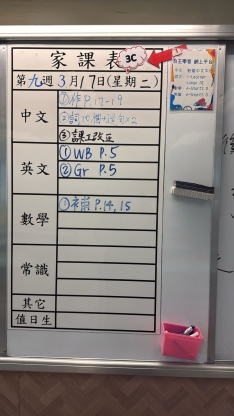 家課表
3C
第九週3月17日(星期二)
中文
①作P.17-19
③課工改正
英文
① WB P.5
② Gr P.5
數學
① P.14, 15
常識
其它
值日生